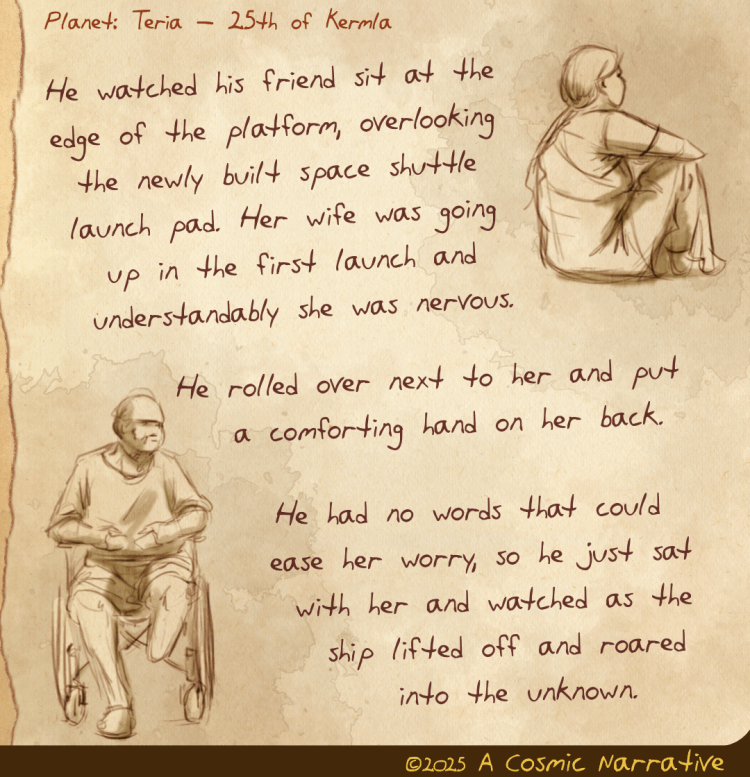 Planet: Teria – 25th of Kermla
He watched his friend sit at the
edge of the platform, overlooking
the newly built space shuttle
launch pad. Her wife was going
up in the first launch and
understandably she was nervous.
He rolled over next to her and put
a comforting hand on her back.
He had no words that could
ease her worry, so he just sat
with her and watched as the
ship lifted off and roared
into the unknown.
©2025 A Cosmic Narrative